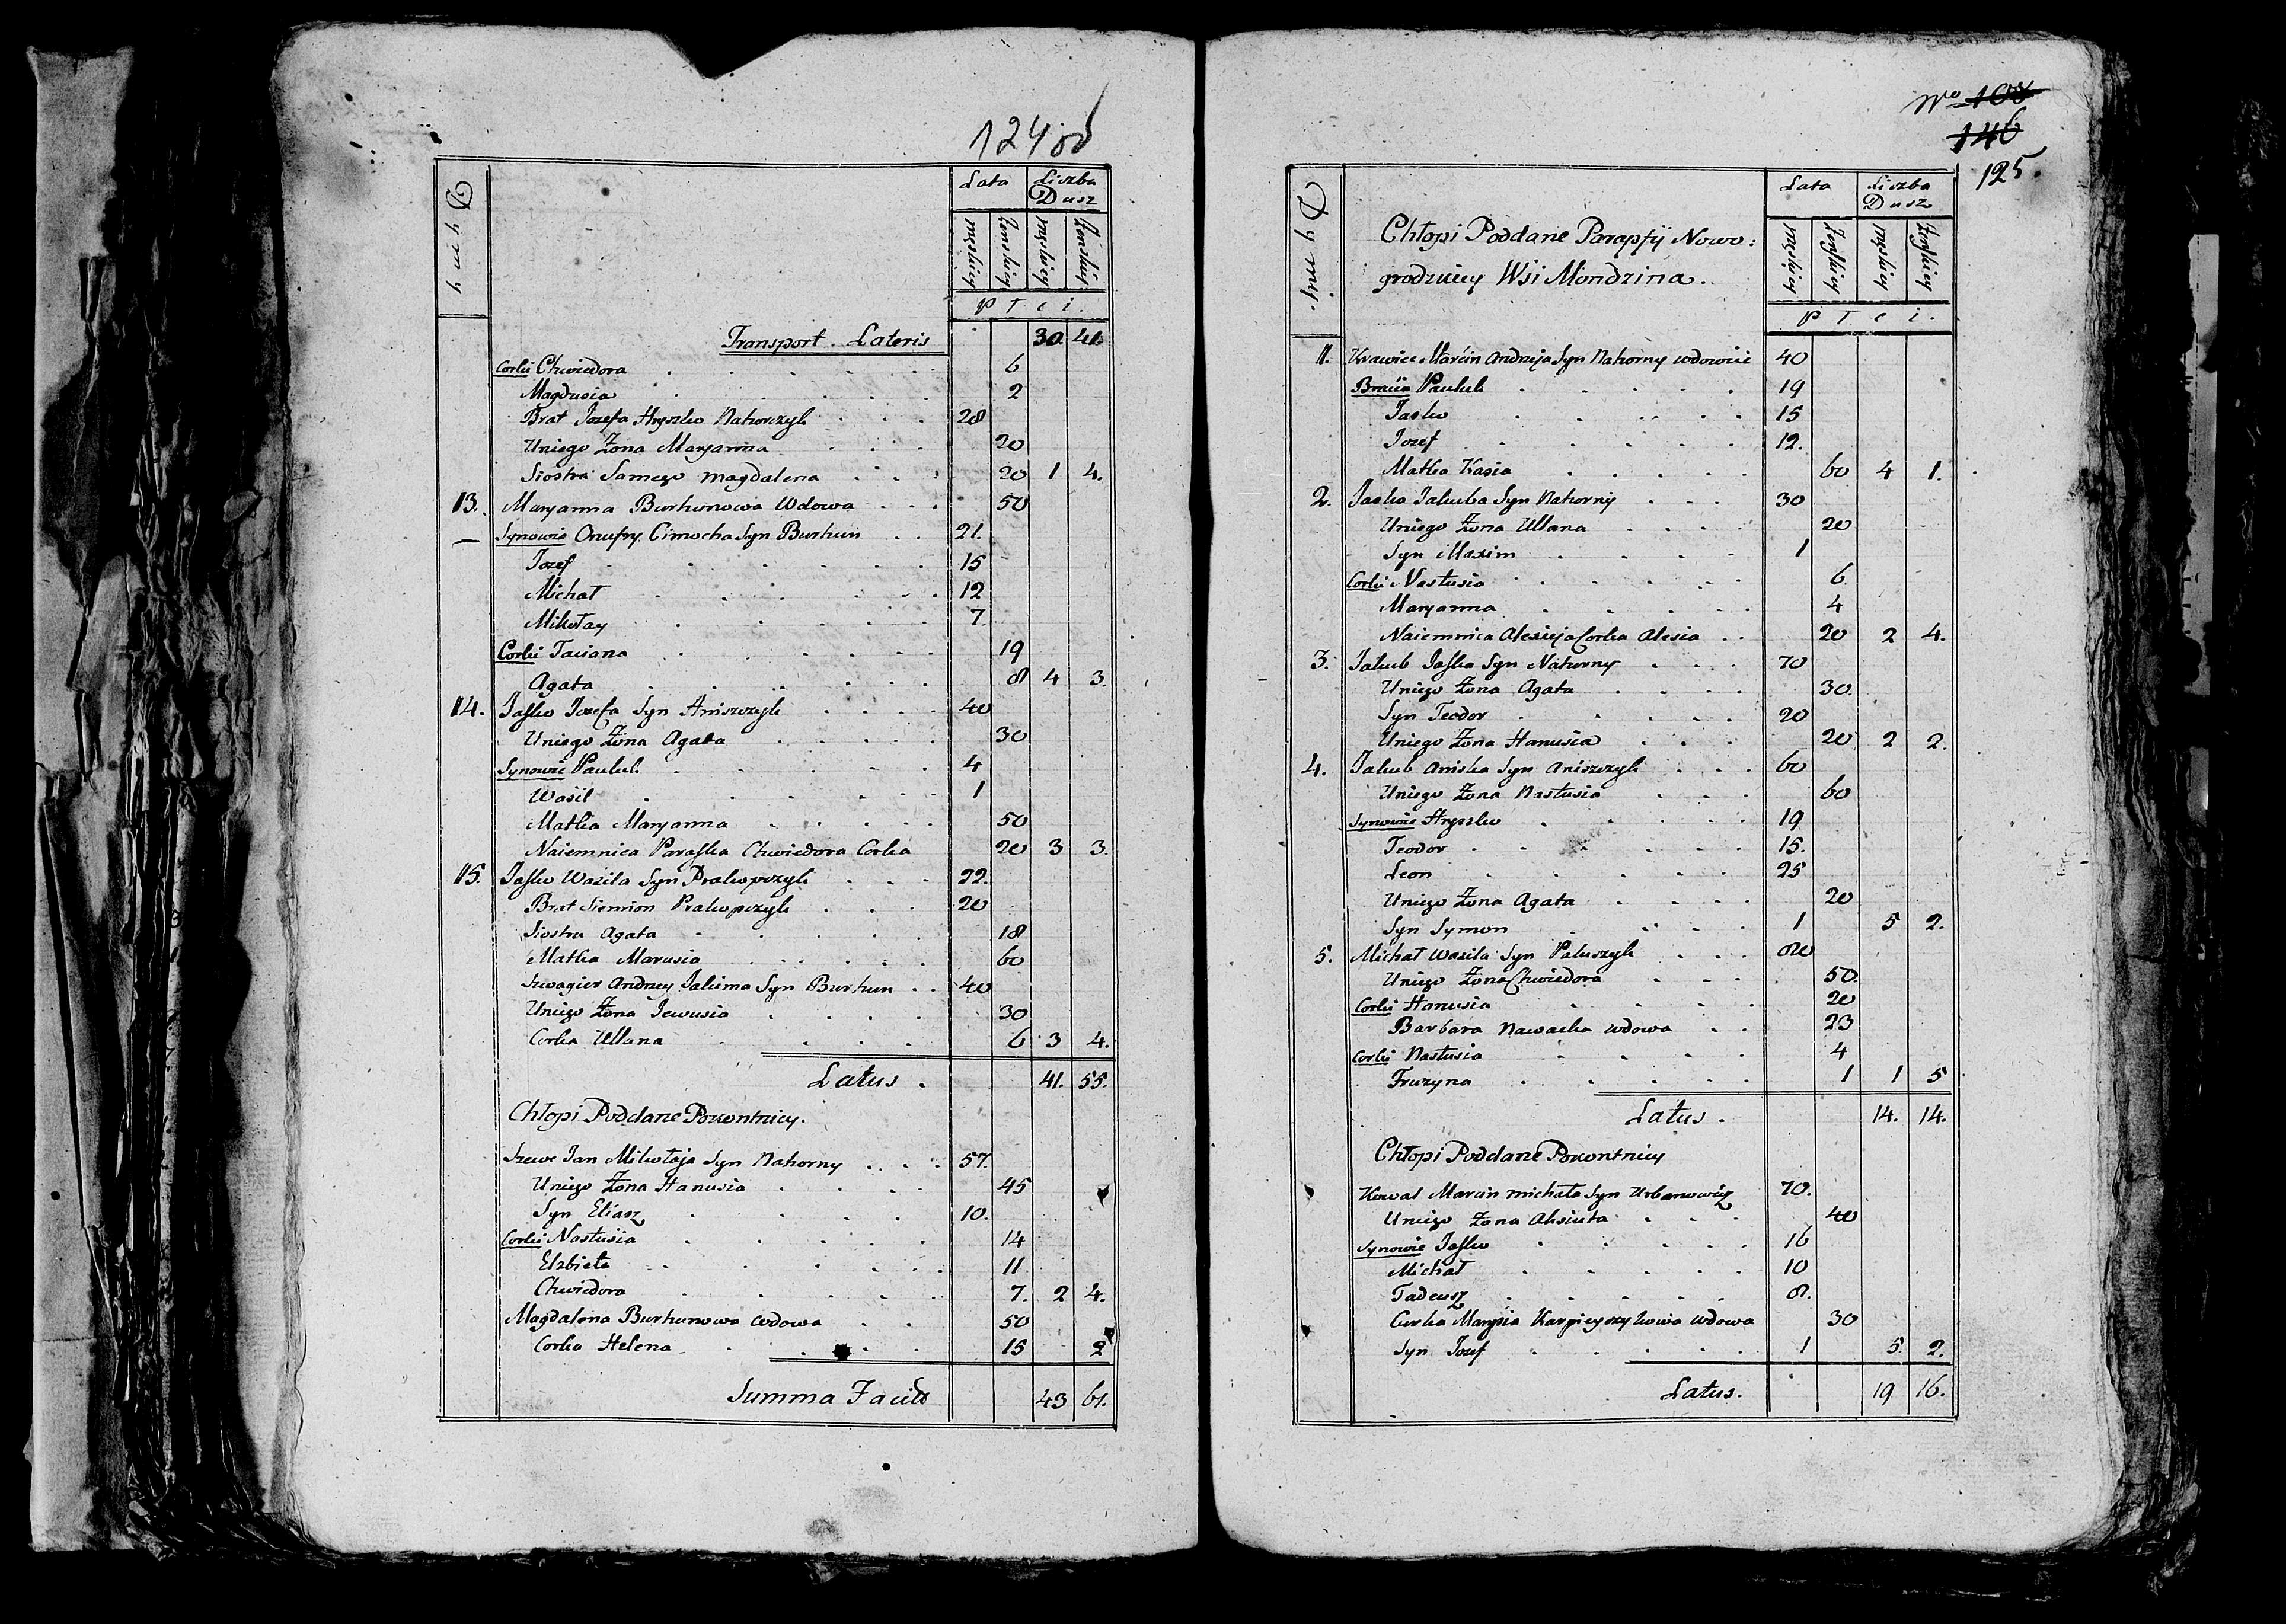 124 od
Dymy
Lata Liczba Dusz
męskiey żenskiey męskiey żenskiey
Ptci.
Transport Lateris 30. 41.
Corki Chwiedora 6
Magdusia 2
Brat Jozefa Hryszko Nahorczyk 28
Uniego Żona Maryanna 20
Siostra Samego Magdalena 20 1 4.
13. Maryanna Burhunowa Wdowa 50
Synowie Onufry Cimocha Syn Burhun 21.
Jozef 15
Michał 12
Mikołay 7.
Corki Taciana 19
Agata 8 4 3.
14. Jaśko Jozefa Syn Aniszczyk 40
Uniego Żona Agata 30
Synowie Pauluk 4
Wasil 1
Matka Maryanna 50
Naiemnica Paraska Chwiedora Corka 20 3 3.
15. Jaśko Wasila Syn Prakopczyk 22.
Brat Siemion Prakopczyk 20
Siostra Agata 18
Matka Marusia 60
Szwagier Andrzey Jakima Syn Burhun 40
Uniego Żona Jewusia 30
Corka Ullana 6 3 4.
Latus. 41. 55.
Chłopi Poddane Pokontnicy.
Szewc Jan Mikołaja Syn Nahorny 57.
Uniego Żona Hanusia 45
Syn Eliasz 10.
Corki Nastusia 14
Elzbieta 11
Chwiedora 7. 2 4.
Magdalena Burhunowa Wdowa 50
Corka Helena 15 2
Summa Facit 43 61.
Nro 108
146
125.
Dymy.
Lata Liczba Dusz
męskiey żenskiey męskiey żenskiey
Ptci.
Chłopi Poddane Parafij Nowo:
grodzkiey Wsi Mondzina.
1. Krawiec Marcin Andrzeja Syn Nahorny wdowiec 40
Bracia Pauluk 19
Jasko 15
Jozef 12.
Matka Kasia 60 4 1.
2. Jasko Jakuba Syn Nahorny 30
Uniego Żona Ullana 20
Syn Maxim 1
Corki Nastusia 6
Maryanna 4
Naiemnica Alexieja Corka Alesia 20 2 4.
3. Jakub Jaśka Syn Nahorny 70
Uniego Żona Agata 30.
Syn Teodor 20
Uniego Żona Hanusia 20 2 2.
4. Jakub Aniska Syn Aniszczyk 60
Uniego Żona Nastusia 60
Synowie Hryszko 19
Teodor 15.
Leon 25
Uniego Żona Agata 20
Syn Symon 1 5 2.
5. Michał Wasila Syn Paluszyk 80
Uniego Żona Chwiedora 50.
Corki Hanusia 20
Barbara Nawacka Wdowa 23
Corki Nastusia 4
Fruzyna 1 1 5
Latus. 14. 14.
Chłopi Poddane Pokontnicy
Kowal Marcin Michała Syn Urbanowicz 70.
Uniego Żona Aksiuta 40
Synowie Jaśko 16
Michał 10
Tadeusz 8.
Curka Marysia wdowa 30
Syn Jozef 1 5. 2.
Latus. 19 16.